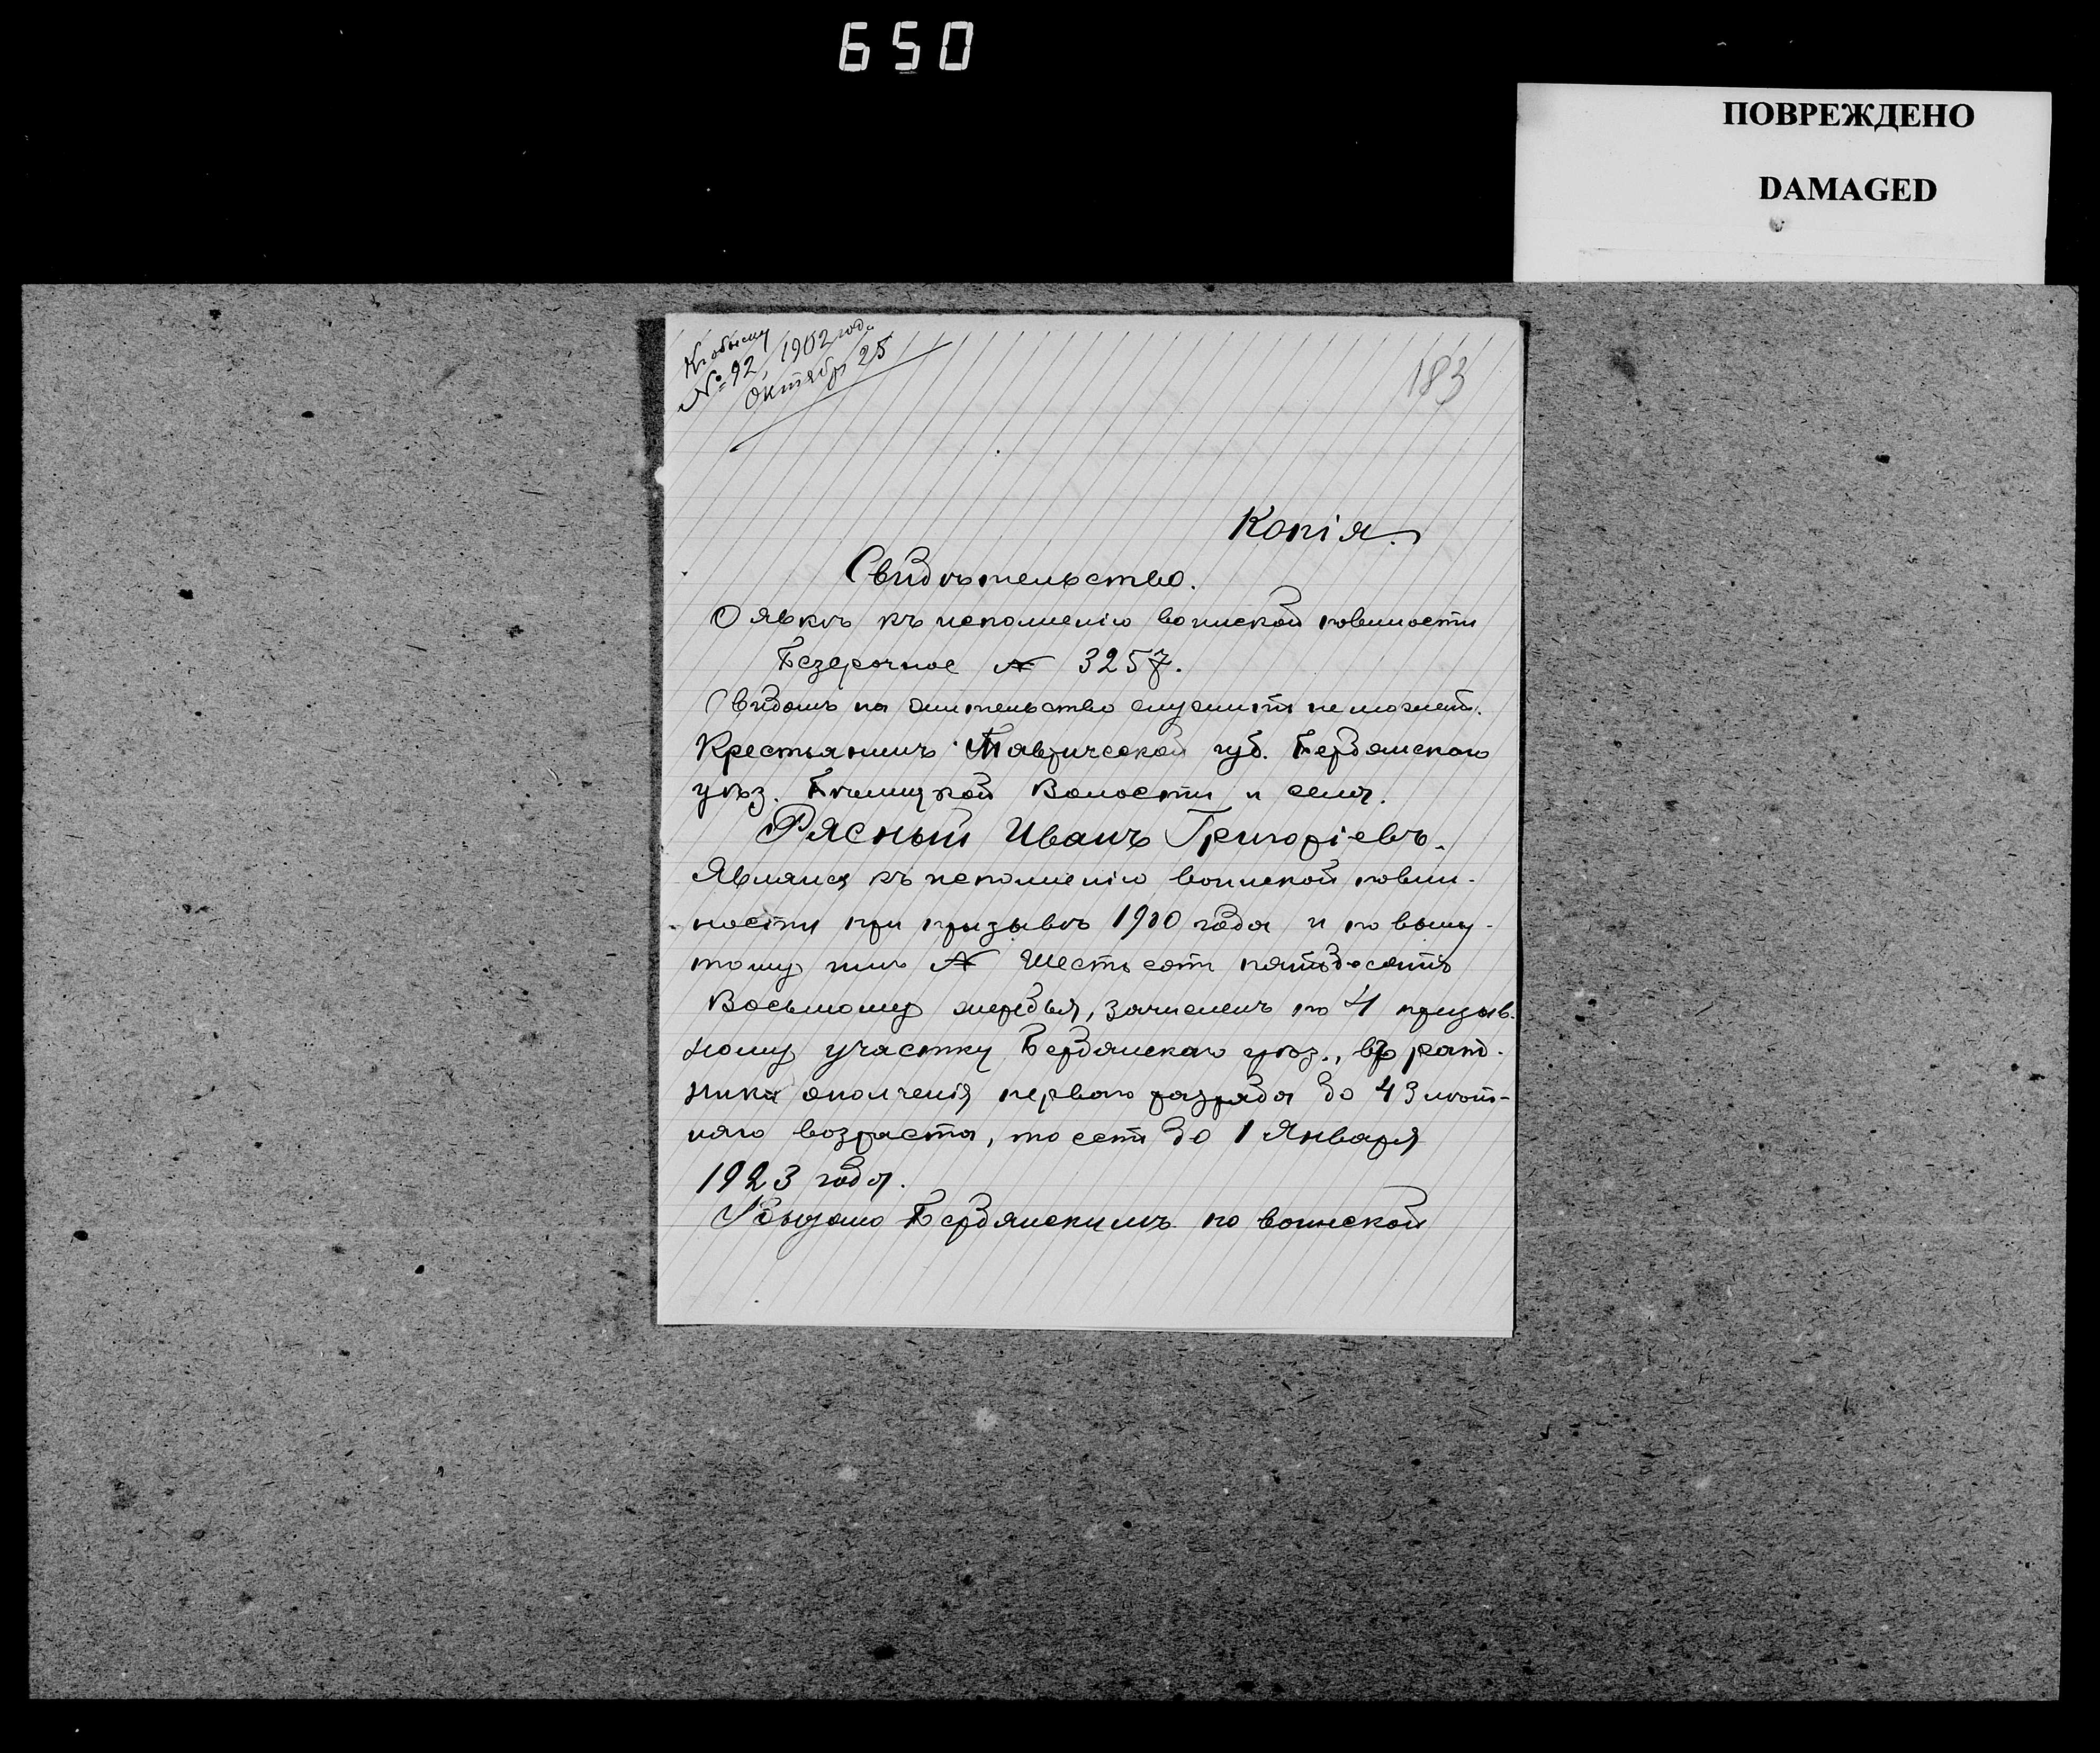 650
ПОВРЕЖДЕНО
DAMAGED
Къ обыску
№ 92, 1902 год.
Октябр 25
183
Копія.
Свидѣтельство.
О явкѣ къ исполненію воинской повинности
Безсрочное № 3257.
Видомъ на жительство служить не может.
Крестьянинъ Таврической губ. Бердянскаго
уѣз. Волости и села.
Рясный Иванъ Григоріевъ.
Являлся къ исполненію воинской повин-
ности при призывѣ 1900 года и по выну-
тому имъ № Шестьсотъ пятьдесятъ
Восьмому жеребья, зачисленъ по 4 призыв-
ному участку Бердянскаго уѣз., въ рат-
ника ополченія перваго разряда до 43 лѣт-
няго возраста, то есть до 1 Января
1923 года.
Выдано Бердянскимъ по воинской